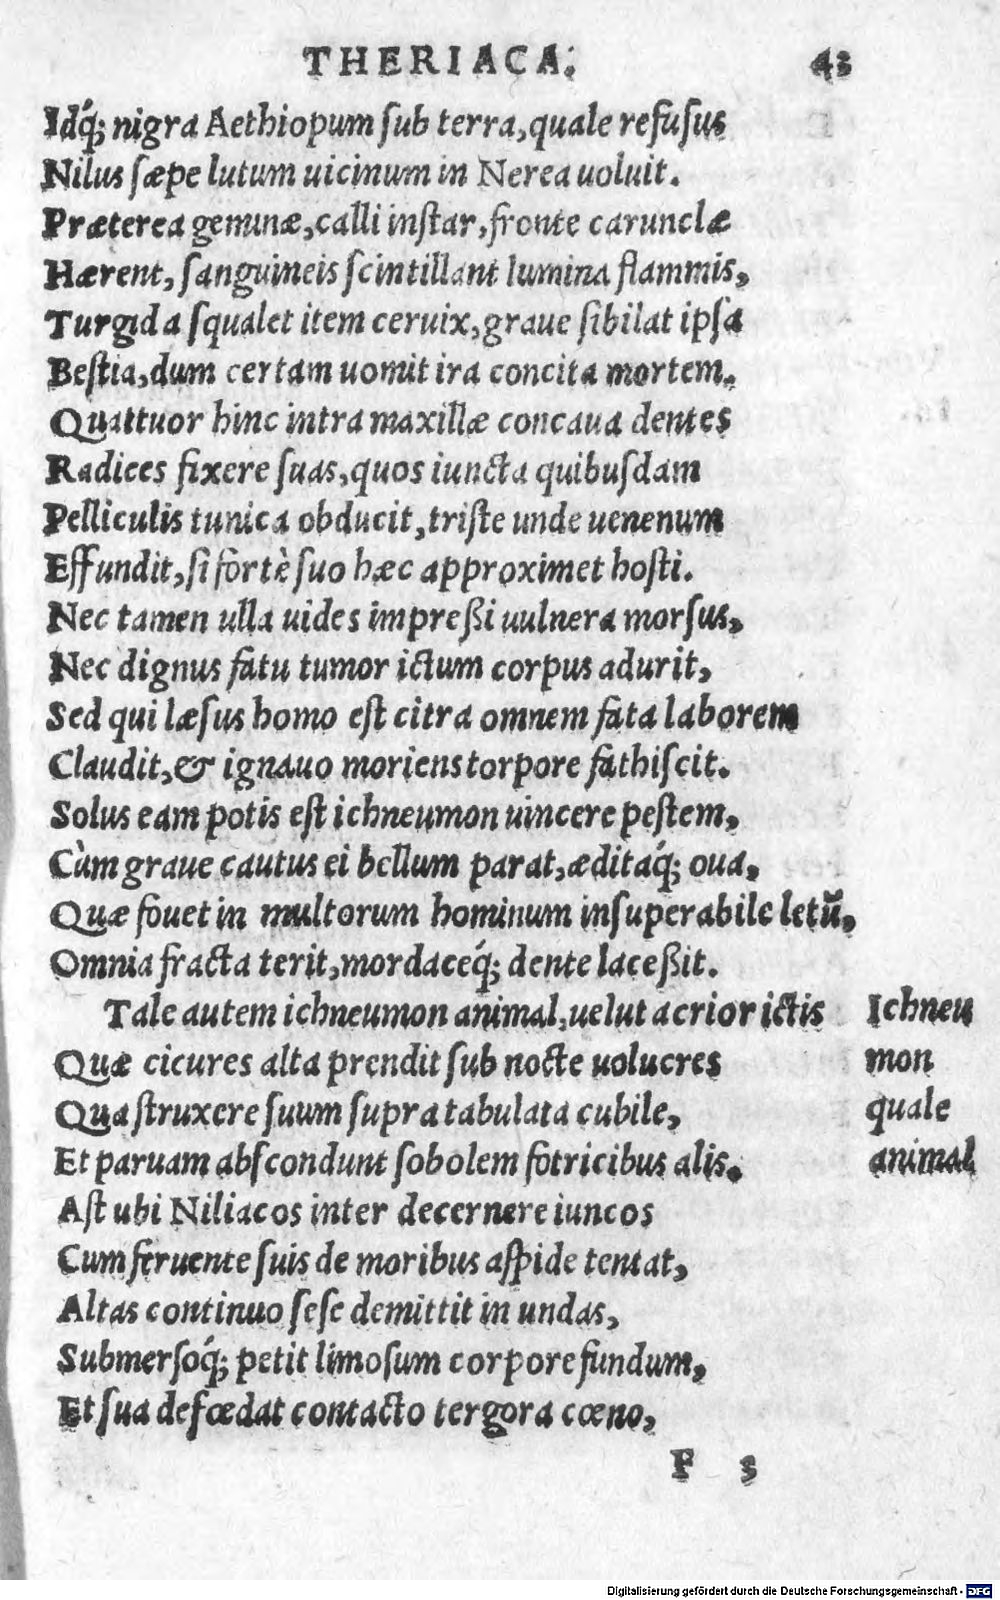 THERIACA. 43
Idq́; nigra Aethiopum ſub terra, quale refuſus
Nilus ſæpe lutum uicinum in Nerea uoluit.
Præterea geminæ, calli inſtar, fronte carunclæ
Hærent, ſanguineis ſcintillant lumina flammis,
Turgida ſqualet item ceruix, graue ſibilat ipſa
Beſtia, dum certam uomit ira concita mortem.
Quattuor hinc intra maxillæ concaua dentes
Radices fixere ſuas, quos iuncta quibuſdam
Pelliculis tunica obducit, triſte unde uenenum
Effundit, ſi fortè ſuo hæc approximet hoſti.
Nec tamen ulla uides impreßi uulnera morſus,
Nec dignus fatu tumor ictum corpus adurit,
Sed qui læſus homo eſt citra omnem fata laborem
Claudit, & ignauo moriens torpore fathiſcit.
Solus eam potis eſt ichneumon uincere peſtem,
Cùm graue cautus ei bellum parat, æditaq́; oua,
Quæ fouet in multorum hominum inſuperabile letũ,
Omnia fracta terit, mordaceq́; dente laceßit.
Tale autem ichneumon animal, uelut acrior ictis
Quæ cicures alta prendit ſub nocte uolucres
Qua ſtruxere ſuum ſupra tabulata cubile,
Et paruam abſcondunt ſobolem fotricibus alis.
Aſt ubi Niliacos inter decernere iuncos
Cum feruente ſuis de moribus aſpide tentat,
Altas continuo ſeſe demittit in undas,
Submerſoq́; petit limoſum corpore fundum,
Et ſua defœdat contacto tergora cœno,
Ichneu
mon
quale
animal
F 3
Digitalisierung gefördert durch die Deutsche Forschungsgemeinschaft - DFG